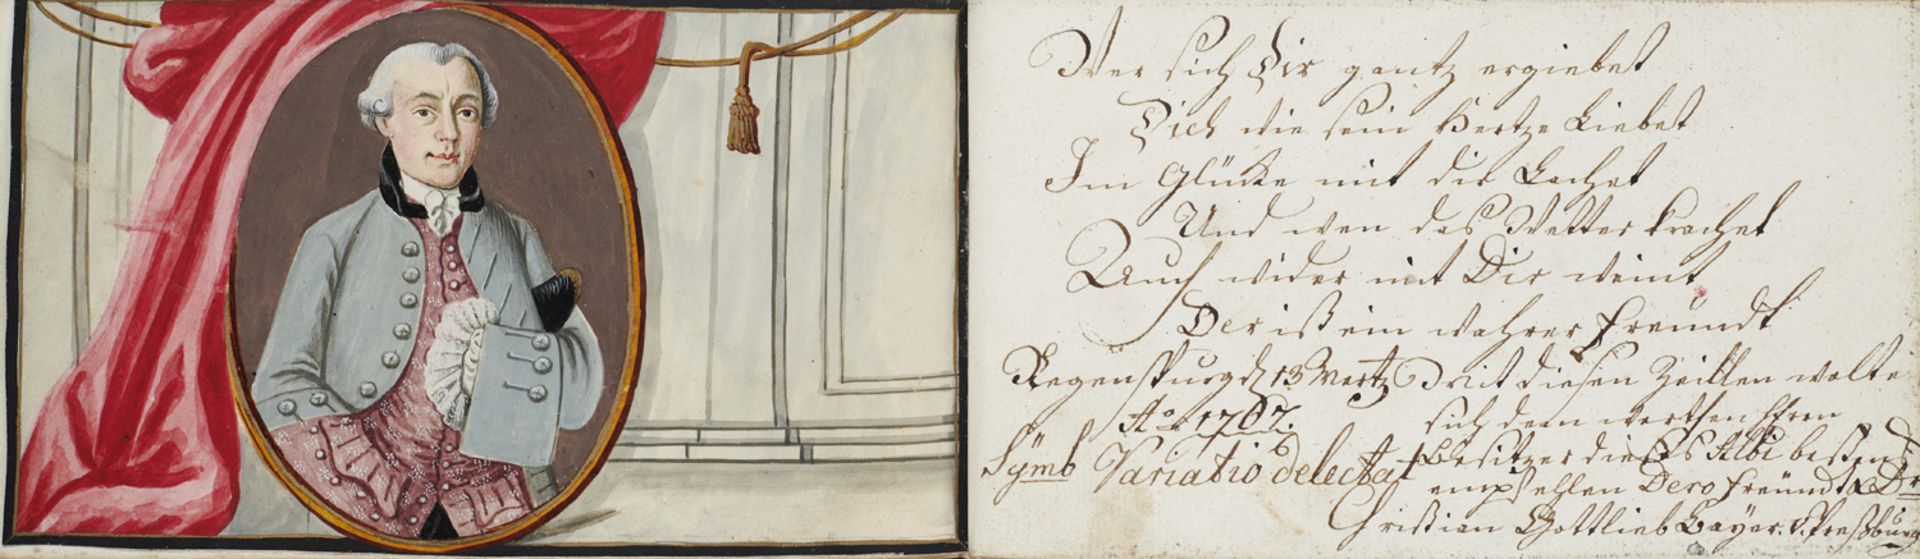 Wer sich Dir gantz ergiebet
Dich wie sein Hertze Liebet
Im Glücke mit dir Lachet
Und wen das Wetter krachet
Auch wider mit Dir weint
Der ist ein wahrer Freundt
Regenspurg d 13 Mertz
Ao 1767.
Symb Variatio delectat
Mit diesen Zeillen wolte
sich dem werthen Herrn
Besitzer dieses Albi bestens
empfehlen Dero Freundt & Dr
Christian Gottlieb Bayer. v. Preßburg